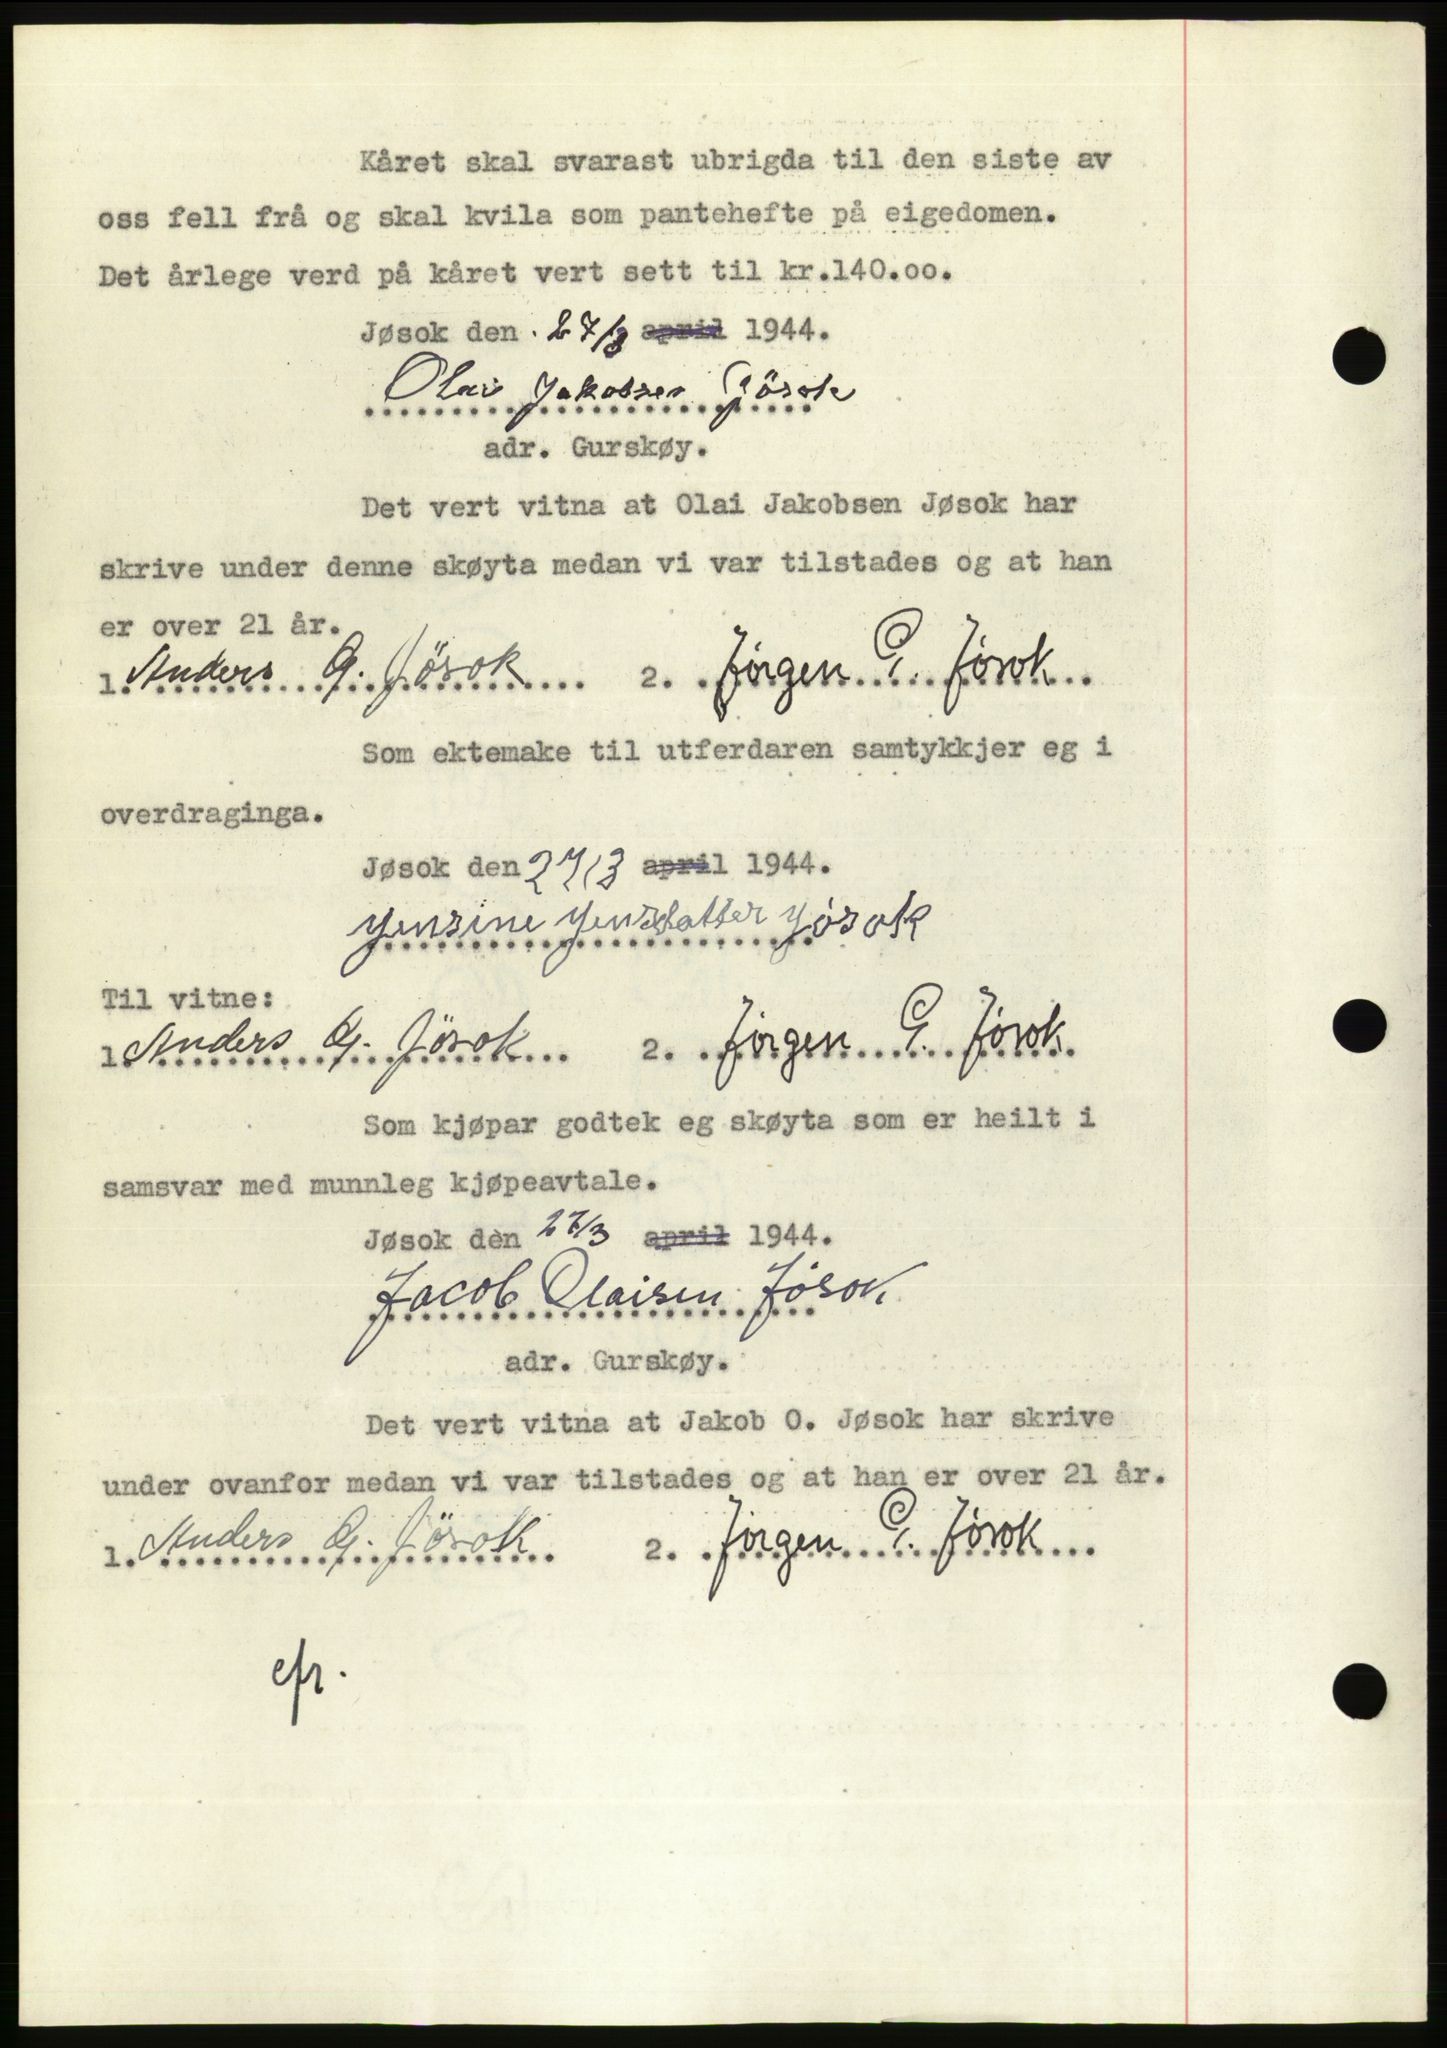 Kåret skal svarast ubrigda til den siste av
oss fell frå og skal kvila som pantehefte på eigedomen.
Det årlege verd på kåret vert sett til kr.140.oo.
Jøsok den 27/3 april 1944.
Olai Jakobsen Jösok
adr. Gurskøy.
Det vert vitna at Olai Jakobsen Jøsok har
skrive under denne skøyta medan vi var tilstades og at han
er over 21 år.
1. Anders G. Jösok 2. Jörgen G. Jösok
Som ektemake til utferdaren samtykkjer eg i
overdraginga.
Jøsok den 27/3 april 1944.
Jensine Jensdatter Jösok
Til vitne:
1. Anders G. Jösok 2. Jörgen G. Jösok
Som kjøpar godtek eg skøyta som er heilt i
samsvar med munnleg kjøpeavtale.
Jøsok den 27/3 april 1944.
Jacob Olaisen Jösok
adr. Gurskøy.
Det vert vitna at Jakob O. Jøsok har skrive
under ovanfor medan vi var tilstades og at han er over 21 år.
1. Anders G. Jösok 2. Jörgen G. Jösok
efr.